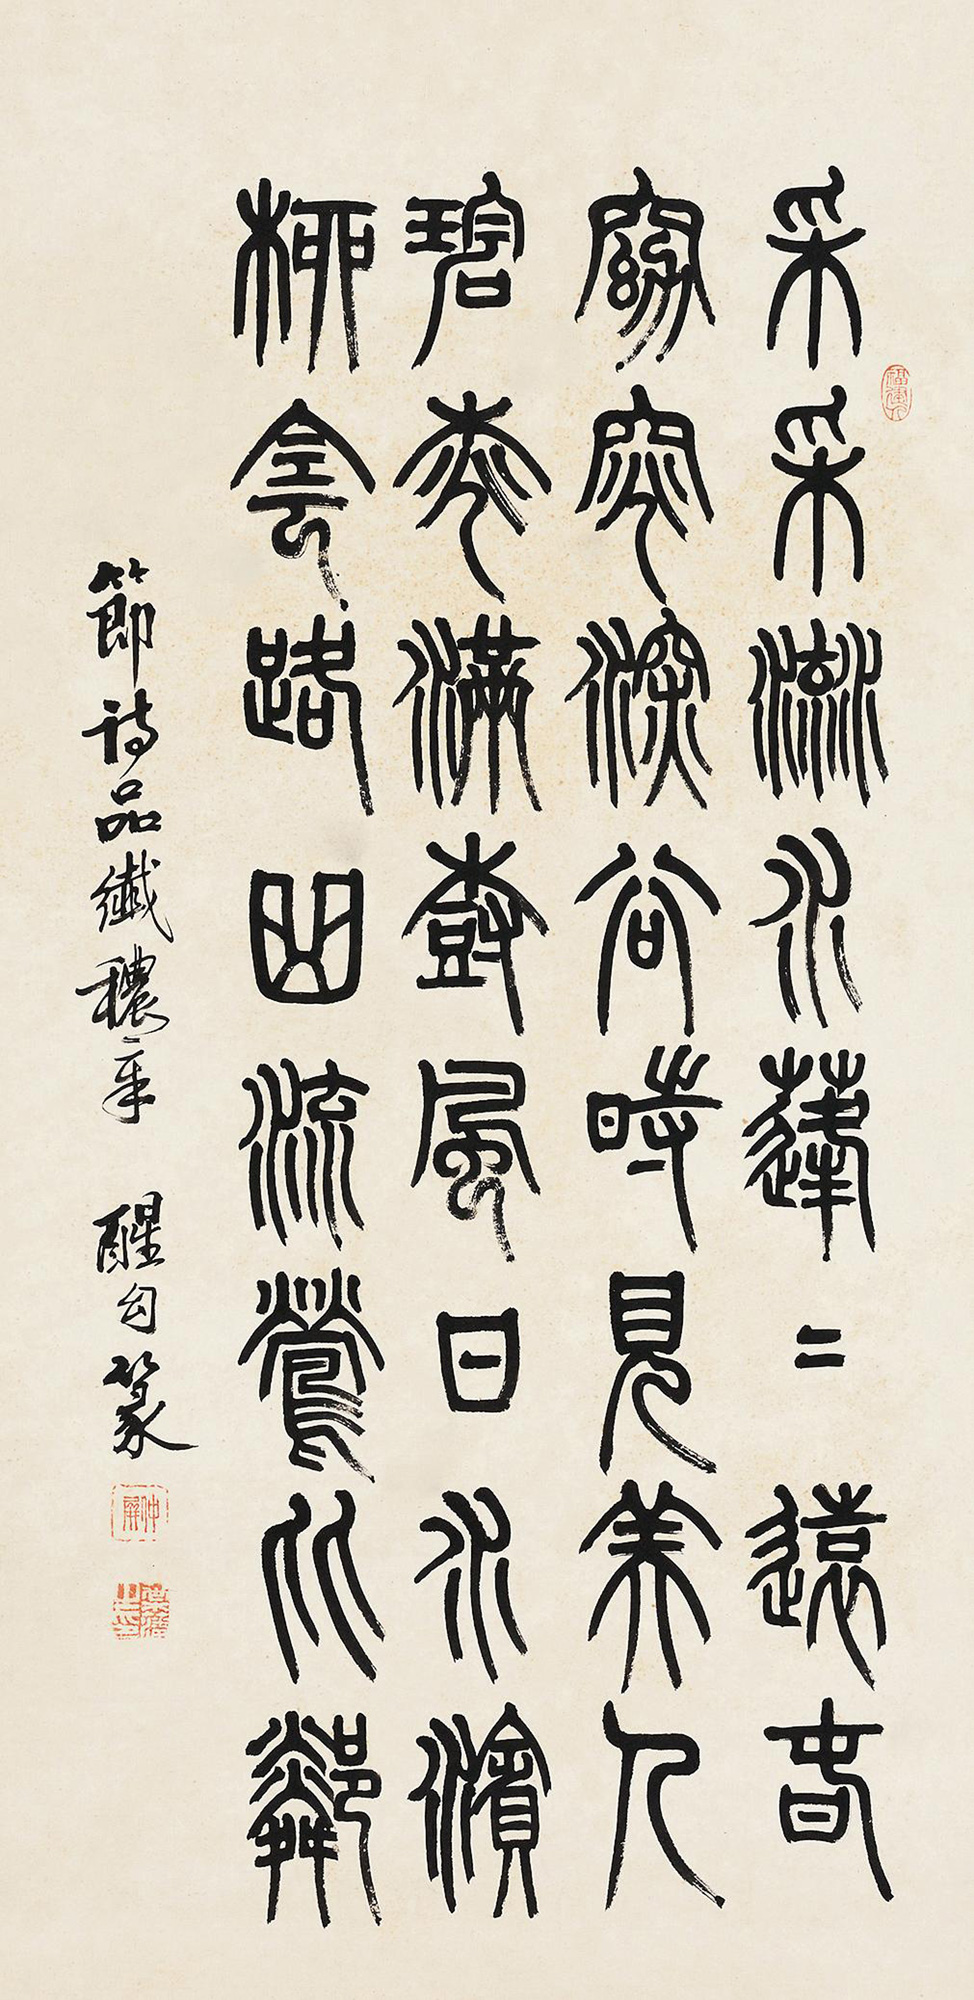 采采流水蓬二遠春
窈窕深谷時見美人
碧桃滿樹風日水濱
柳侌路曲流鶯比鄰
節詩品纖穠章 醒篆
仲屏